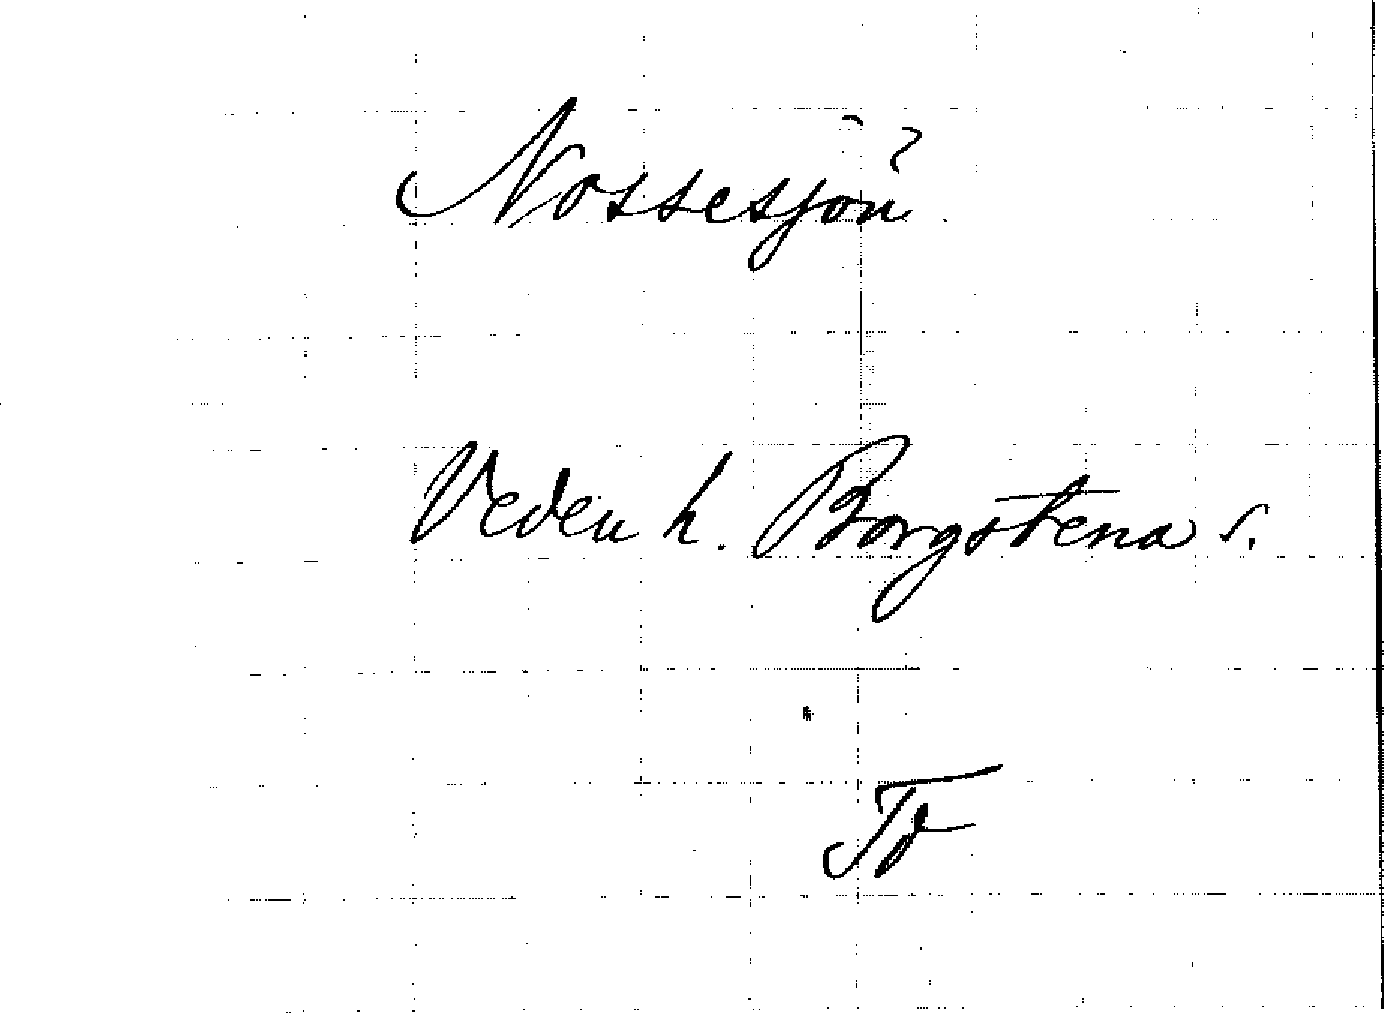 Nossesjön
Veden h. Borgstena s.
To